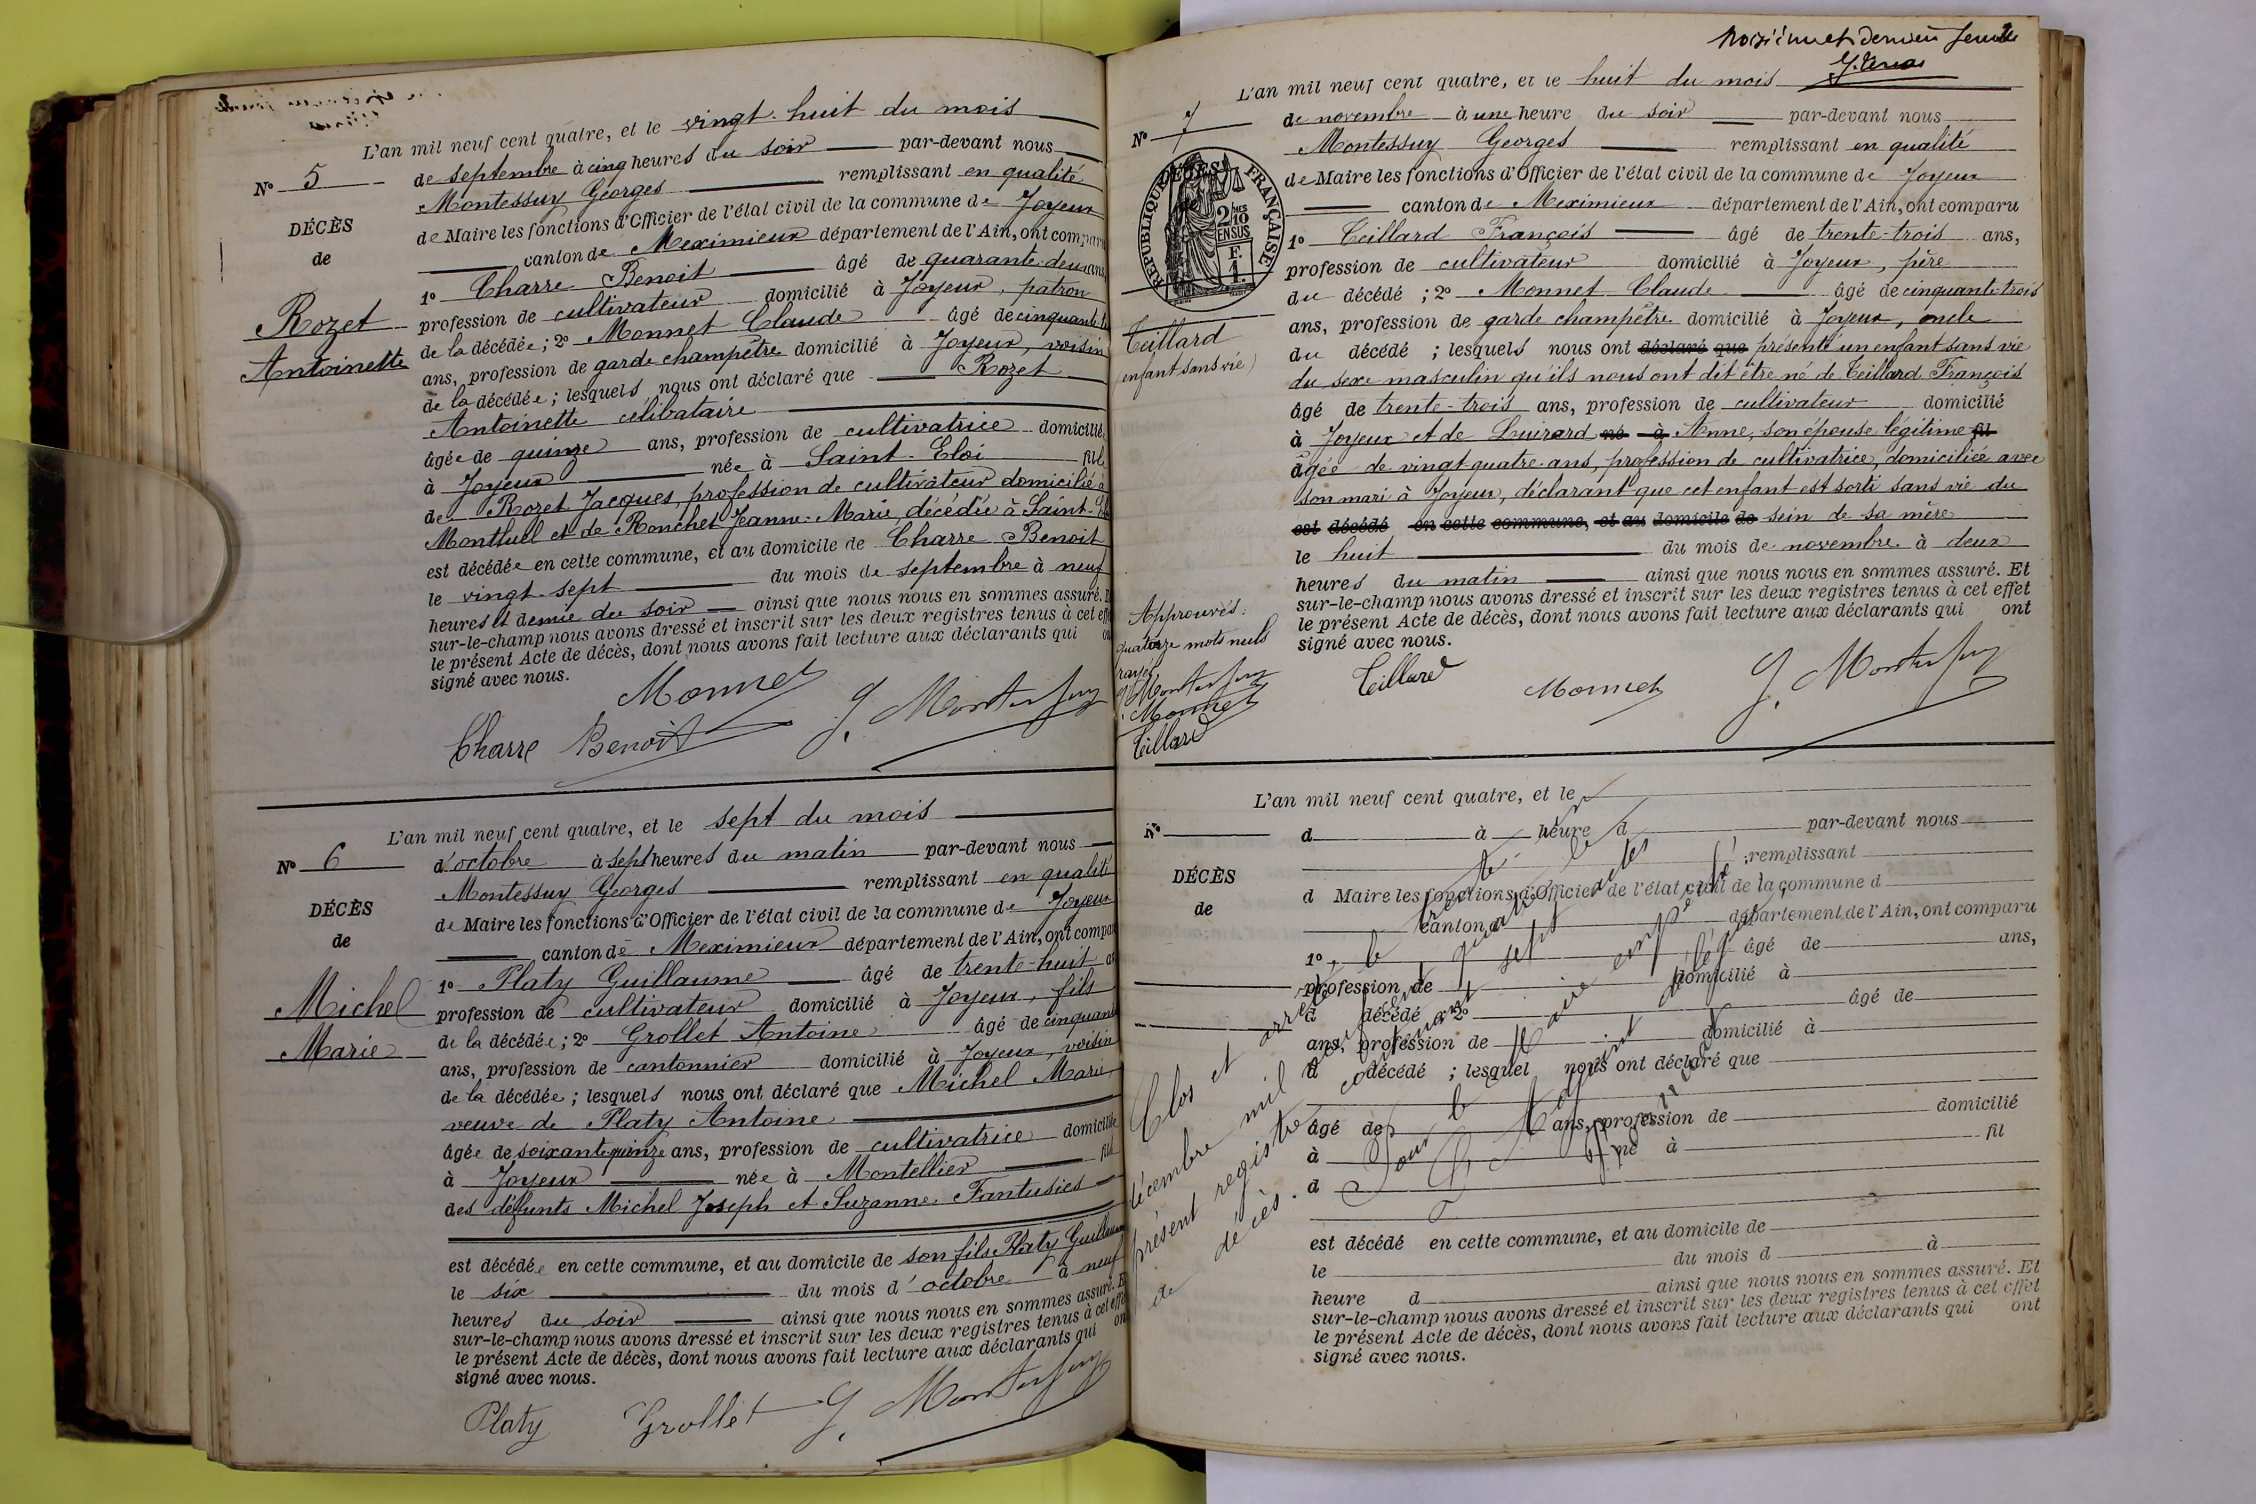 L'an mil neuf cent quatre, et le vingt-huit du mois
de septembre à cinq heures du soir par-devant nous
Montessuy Georges remplissant en qualité
de Maire les fonctions d'Officier de l'état civil de la commune de Joyeux
canton de Meximieux département de l'Ain, ont comparu
1º Charre Benoit âgé de quarante-deux ans
profession de cultivateur domicilié à Joyeux, patron
de la décédée; 2º Monnet Claude âgé de cinquante
ans, profession de garde champêtre domicilié à Joyeux, voisin
de la décédée; lesquels nous ont déclaré que Rozet
Antoinette célibataire
âgée de quinze ans, profession de cultivatrice domiciliée
à Joyeux née à Saint-Eloi fille
de Rozet Jacques, profession de cultivateur domicilié à
Montluel et de Ronchet Jeanne-Marie, décédée à Saint-
est décédée en cette commune, et au domicile de Charre Benoit
le vingt-sept du mois de septembre à neuf
heures et demie du soir ainsi que nous nous en sommes assuré. Et
sur-le-champ nous avons dressé et inscrit sur les deux registres tenus à cet effet
le présent Acte de décès, dont nous avons fait lecture aux déclarants qui ont
signé avec nous.
Nº 5
DÉCÈS
de
Rozet
Antoinette
Monnet
Charre Benoit G. Montessuy
L'an mil neuf cent quatre, et le sept du mois
d'octobre à sept heures du matin par-devant nous
Montessuy Georges remplissant en qualité
de Maire les fonctions d'Officier de l'état civil de la commune de Joyeux
canton de Meximieux département de l'Ain, ont comparu
1º Platy Guillaume âgé de trente-huit ans
profession de cultivateur domicilié à Joyeux, fils
de la décédée; 2º Grollet Antoine âgé de cinquante
ans, profession de cantonnier domicilié à Joyeux, voisin
de la décédée; lesquels nous ont déclaré que Michel Marie,
veuve de Platy Antoine
âgée de soixante quinze ans, profession de cultivatrice domiciliée
à Joyeux née à Montellier fille
des défunts Michel Joseph et Suzanne Fantusies
est décédée en cette commune, et au domicile de son fils Platy Guillaume
le six du mois d'octobre à neuf
heures du soir ainsi que nous nous en sommes assuré. Et
sur-le-champ nous avons dressé et inscrit sur les deux registres tenus à cet effet
le présent Acte de décès, dont nous avons fait lecture aux déclarants qui ont
signé avec nous.
Nº 6
DÉCÈS
de
Michel
Marie
Platy Grollet G. Montessuy
troisième et dernier feuille
L'an mil neuf cent quatre, et le huit du mois
de novembre à une heure du soir par-devant nous
Montessuy Georges remplissant en qualité
de Maire les fonctions d'Officier de l'état civil de la commune de Joyeux
canton de Meximieux département de l'Ain, ont comparu
1º Teillard François âgé de trente-trois ans,
profession de cultivateur domicilié à Joyeux, père
du décédé; 2º Monnet Claude âgé de cinquante trois
ans, profession de garde champêtre domicilié à Joyeux, oncle
du décédé; lesquels nous ont déclaré que présenté un enfant sans vie
du sexe masculin qu'ils nous ont dit être né de Teillard François
âgé de trente-trois ans, profession de cultivateur domicilié
à Joyeux et de Luirard né à Anne, son épouse légitime fil
âgée de vingt-quatre ans, profession de cultivatrice, domiciliée avec
son mari à Joyeux, déclarant que cet enfant est sorti sans vie du
est décédé en cette commune, et au domicile de sein de sa mère
le huit du mois de novembre à deux
heures du matin ainsi que nous nous en sommes assuré. Et
sur-le-champ nous avons dressé et inscrit sur les deux registres tenus à cet effet
le présent Acte de décès, dont nous avons fait lecture aux déclarants qui ont
signé avec nous.
Nº 7
DÉCÈS
de
RÉPUBLIQUE FRANÇAISE
2/10 EN SUS
F. 1.
Teillard
(enfant sans vie)
Approuvés:
quatorze mots nuls
rayés
G. Montessuy
Monnet
Teillard
Teillard Monnet G. Montessuy
L'an mil neuf cent quatre, et le
d à heure d par-devant nous
remplissant
d Maire les fonctions d'Officier de l'état civil de la commune d
canton d département de l'Ain, ont comparu
1º âgé de ans,
profession de domicilié à
d décédé 2º âgé de
ans, profession de domicilié à
d décédé ; lesquel nous ont déclaré que
âgé de ans, profession de domicilié
à né à fil
d
est décédé en cette commune, et au domicile de
le du mois d à
heure d ainsi que nous nous en sommes assuré. Et
sur-le-champ nous avons dressé et inscrit sur les deux registres tenus à cet effet
le présent Acte de décès, dont nous avons fait lecture aux déclarants qui ont
signé avec nous.
Nº
DÉCÈS
de
Clos et arrêté le trente et un
décembre mil neuf cent quatre le
présent registre contenant sept actes
de décès.
Pour le Maire empêché,